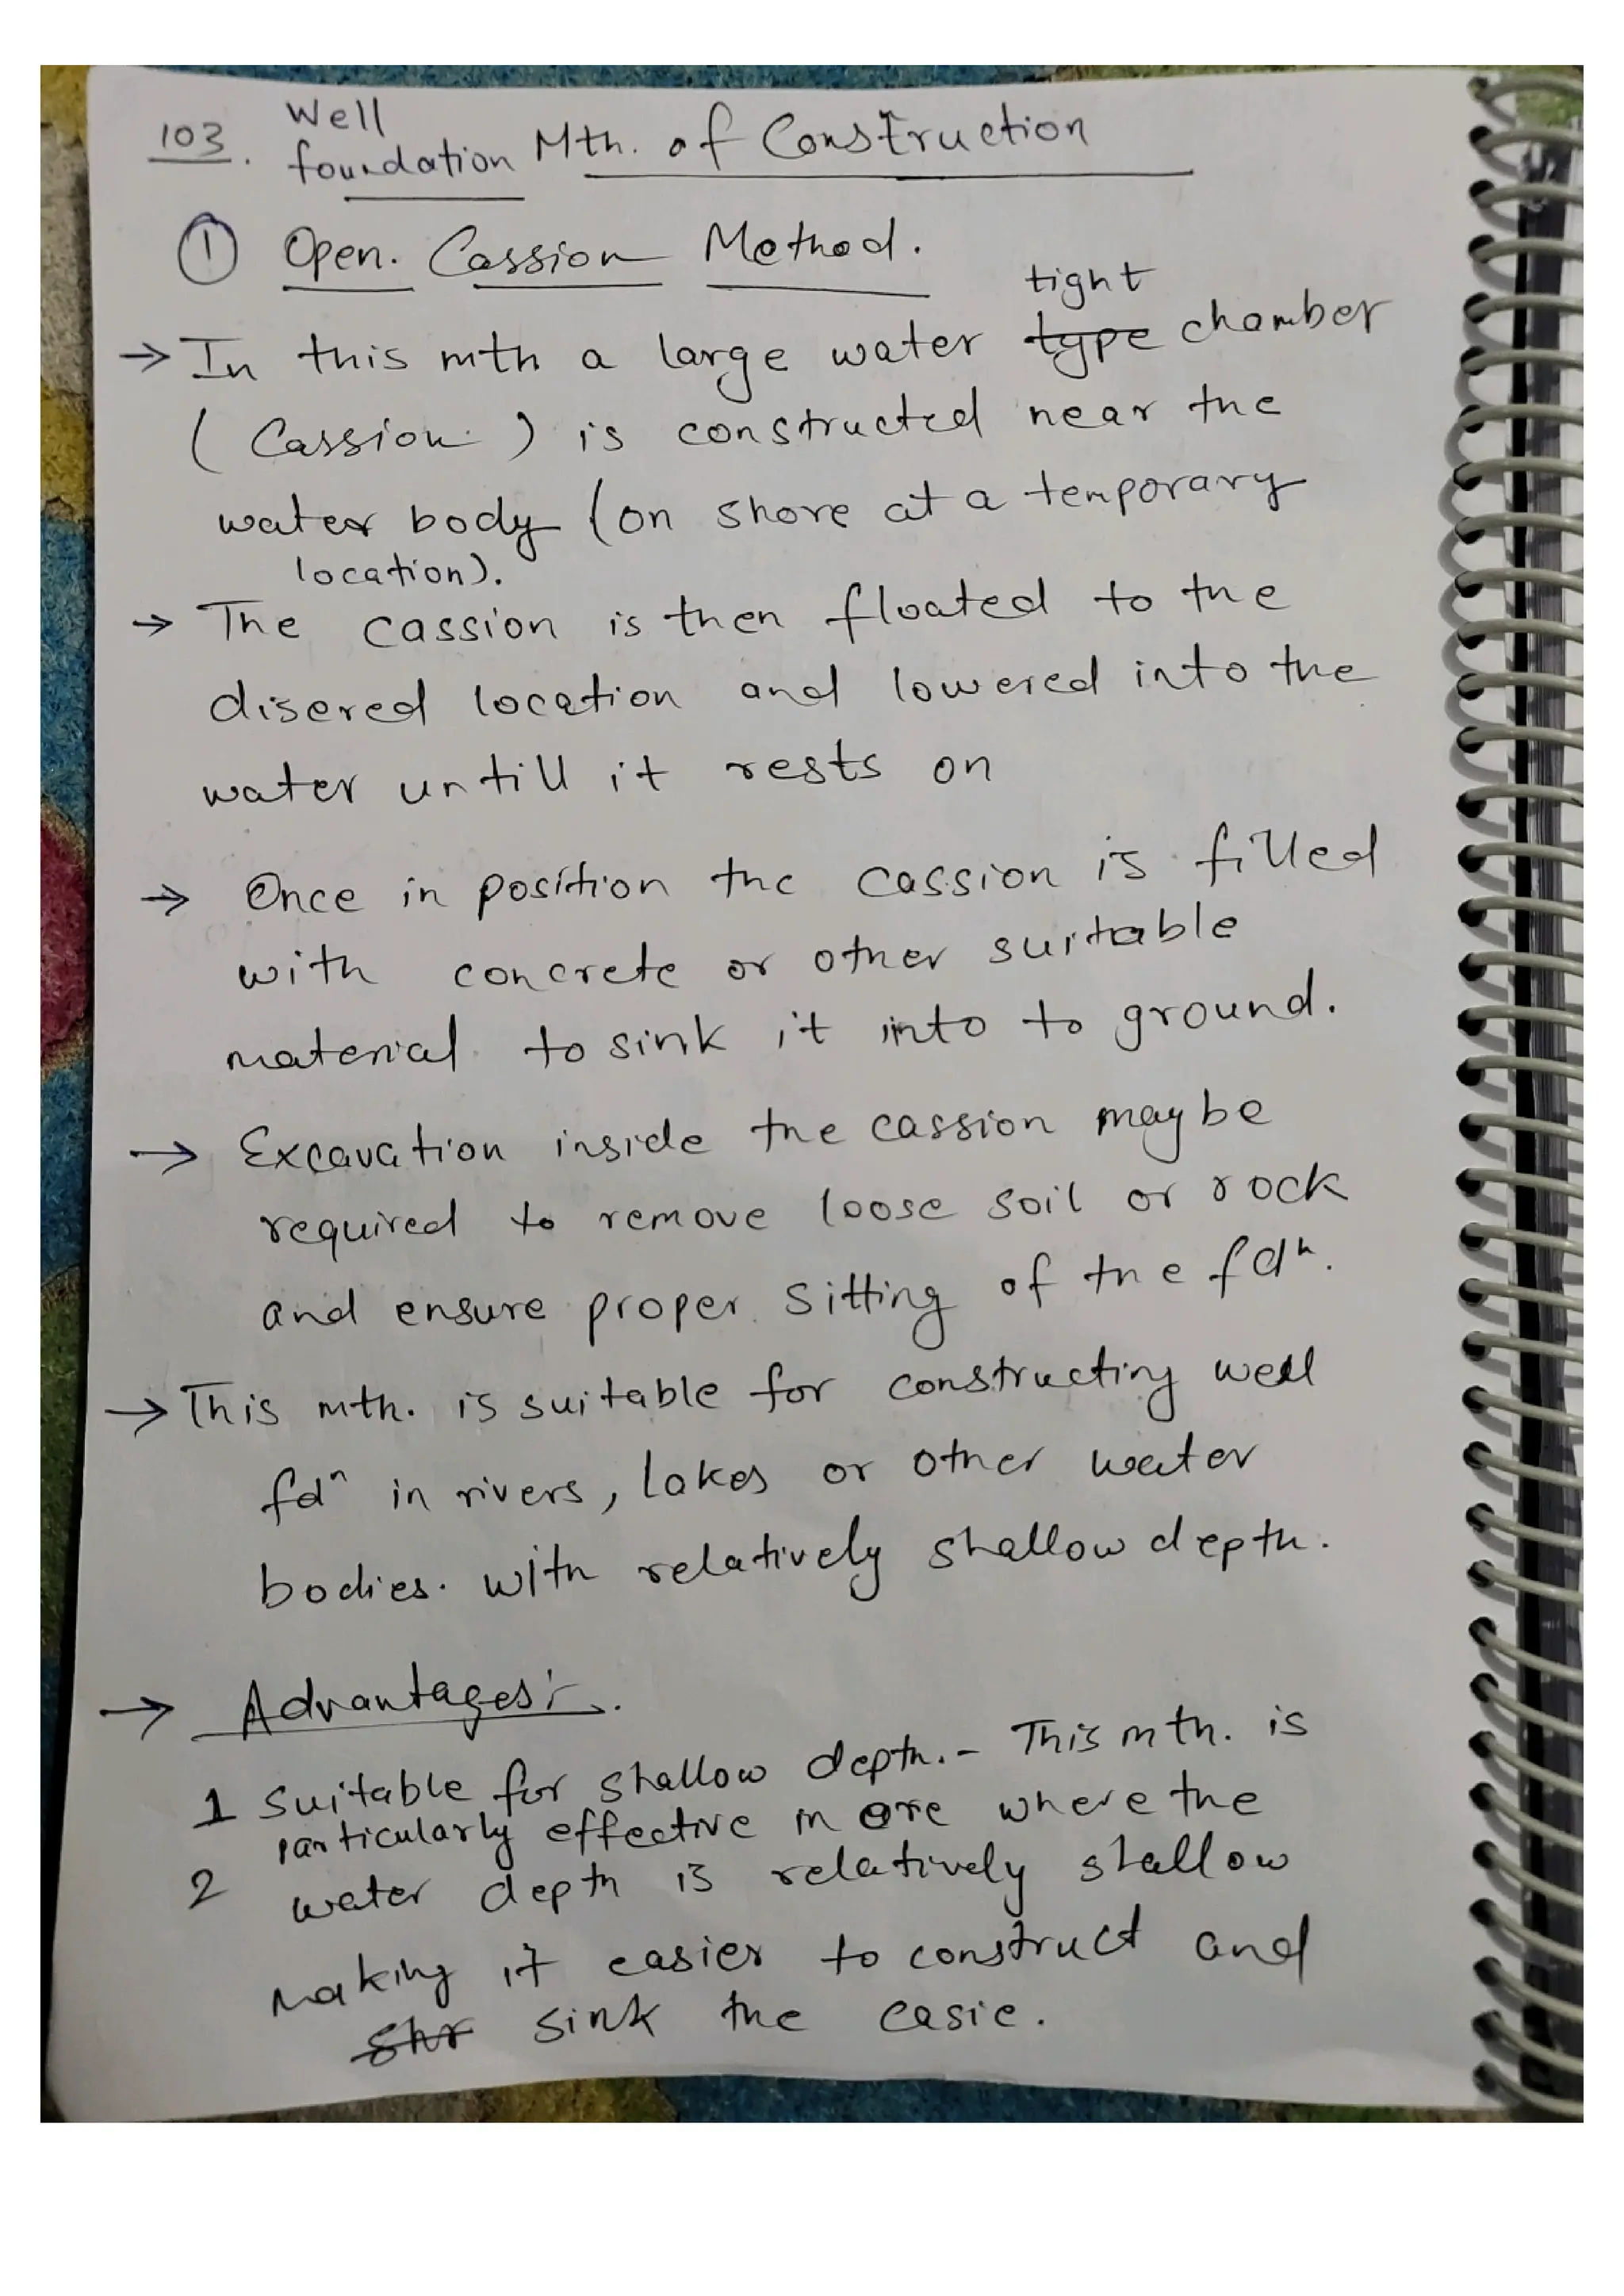 103. Well foundation Mth. of Construction
① Open. Cassion Method.
tight
→ In this mth a large water type chamber
( Cassion. ) is constructed near the
water body (on shore at a temporary
location).
→ The cassion is then floated to the
disered location and lowered into the
water untill it rests on
→ Once in position the cassion is filled
with concrete or other suitable
material to sink it into to ground.
→ Excavation inside the cassion may be
required to remove loose soil or rock
and ensure proper sitting of the fdn.
→ This mth. is suitable for constructing well
fdn in rivers, lakes or other water
bodies. with relatively shallow depth.
→ Advantages:-.
1 Suitable for shallow depth. - This mth. is
particularly effective in where the
2 water depth is relatively shallow
making it easier to construct and
sink the casie.